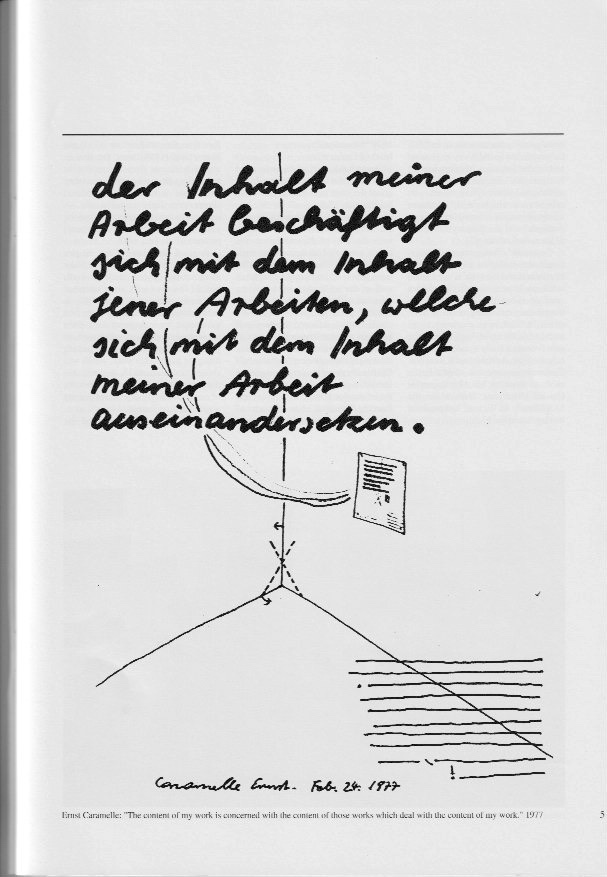 der Inhalt meiner
Arbeit beschäftigt
sich mit dem Inhalt
jener Arbeiten, welche
sich mit dem Inhalt
meiner Arbeit
auseinandersetzen.
Caramelle Ernst. Feb. 24. 1977
Ernst Caramelle: "The content of my work is concerned with the content of those works which deal with the content of my work." 1977
5